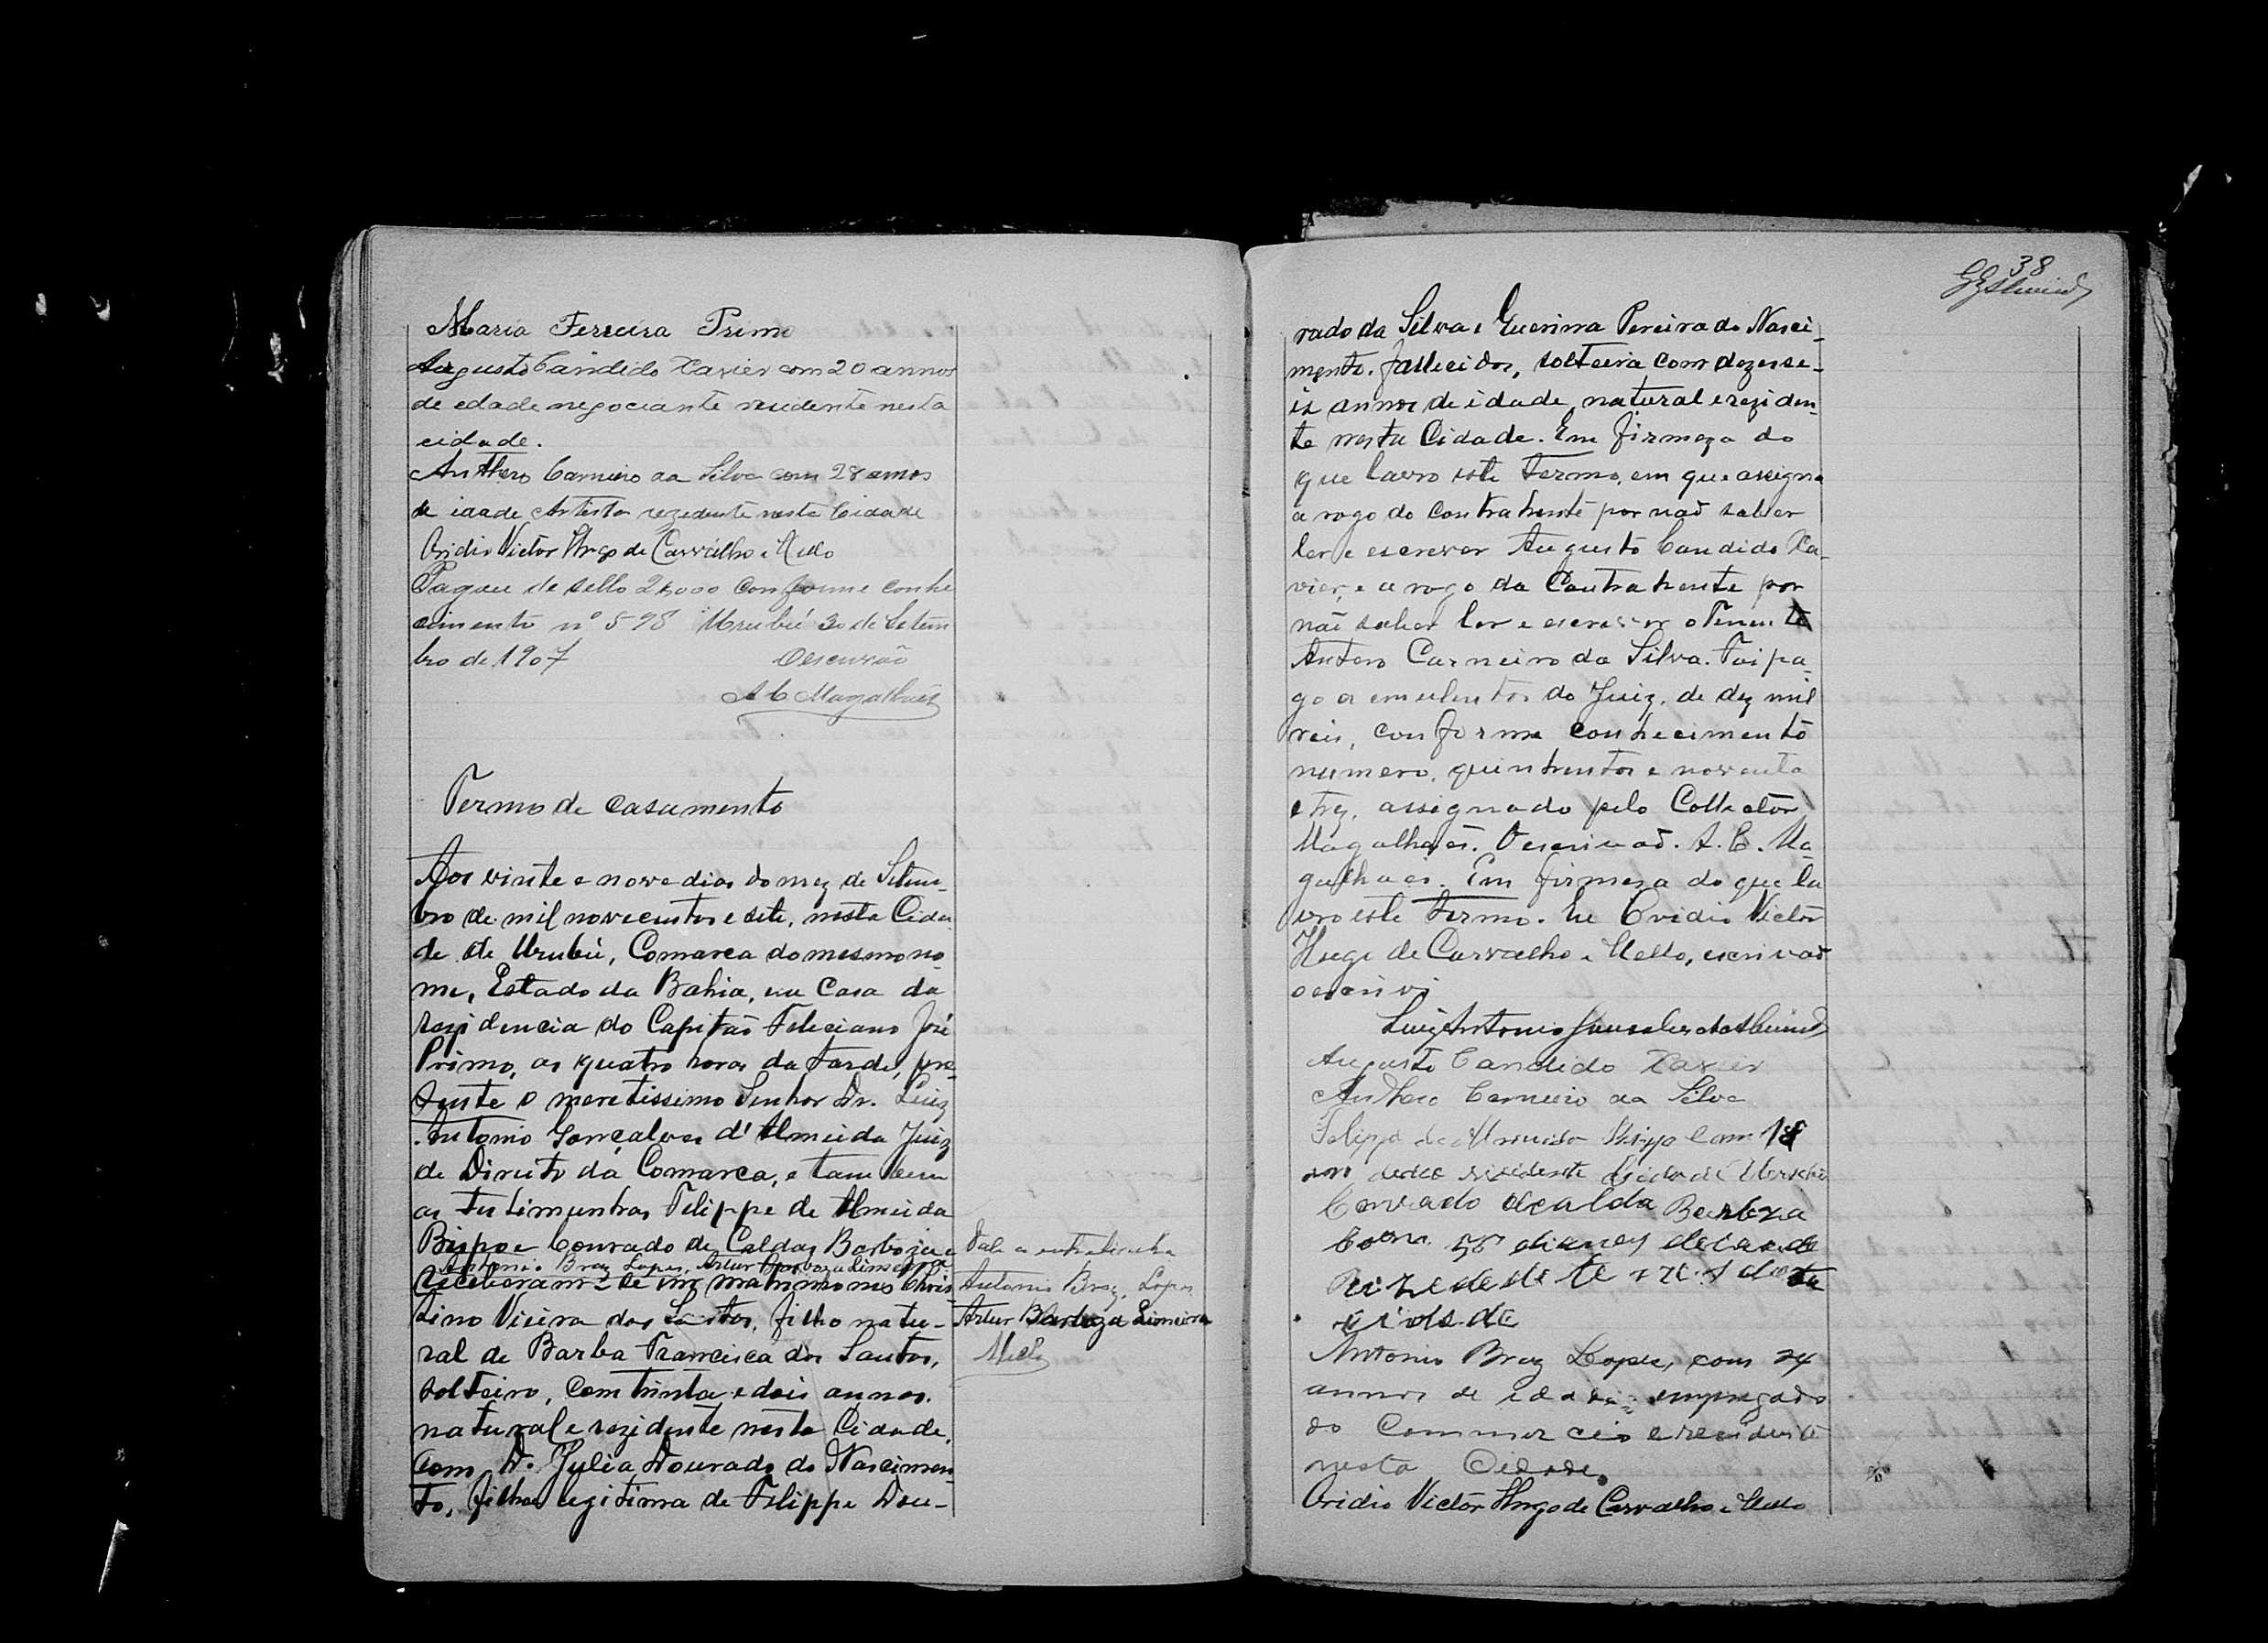 Maria Ferreira Primo
Augusto Candido Xavier com 20 annos
de edade negociante residente nesta
cidade.
Anthero Carneiro da Silva com 28 annos
de idade Artista rezedente nesta Cidade
Ovidio Victor Hugo de Carvalho e Mello
Pagou de sello 2$000 conforme conhe
cimento nº 598 Urubú 30 de Setem
bro de 1907 O escrivão
A C Magalhães
Termo de casamento
Aos vinte e nove dias do mez de Setem-
bro de mil novecentos e sete, nesta Cida
de de Urubú, Comarca do mesmo no-
me, Estado da Bahia, em Casa da
rezidencia do Capitão Feleciano José
Primo, as quatro horas da tarde, pre-
sente o meretissimo Senhor Dr. Luiz
Antonio Gonçalves d'Almeida Juiz
de Direito da Comarca, e tambem
as testimunhas Felippe de Almeida
Bispo e Conrado de Caldas Barboza e
Antonio Braz Lopes, Artur Barboza Limeira
receberam-se em matrimonio Chris-
tino Vieira dos Santos, filho natu-
ral de Barba Francisca dos Santos,
solteiro, com trinta e dois annos.
natural e rezidente nesta Cidade,
com D. Julia Dourado do Nascimen-
to, filha legitima de Felippe Dou-
Vale a entrelinha
Antonio Braz Lopes
Artur Barboza Limeira
Mello
38
rado da Silva e Guerina Pereira do Nasci-
mento, fallecidos, solteira com dezese-
is annos de idade, natural e reziden-
te nesta Cidade. Em firmeza do
que lavro este termo, em que assigna
a rogo do contrahente por naõ saber
ler e escrever Augusto Candido Xa-
vier, e a rogo da Contrahente por
não saber ler e escrever o Tenente
Antero Carneiro da Silva. Foi pa-
go os emulentos do Juiz, de dez mil
reis, conforme conhecimento
numero, quinhentos e noventa
e trez, assignado pelo Collector
Magalhães. O escrivaõ. A. C. Ma-
galhaes. Em firmeza do que la
vro este termo. Eu Ovidio Victor
Hugo de Carvalho e Mello, escrivaõ
o escrivi
Luiz Antonio Gonsalves de Almeida
Augusto Candido Xavier
Anthero Carneiro da Silva
Felippe de Almeida Bispo Com
residente Cidade de Urubú
Conrado de Calda Barboza
Com 58
cidade
Antonio Braz Lopes, com 24
annos de idade empregado
do Commercio e residente
nesta Cidade.
Ovidio Victor Hugo de Carvalho e Mello